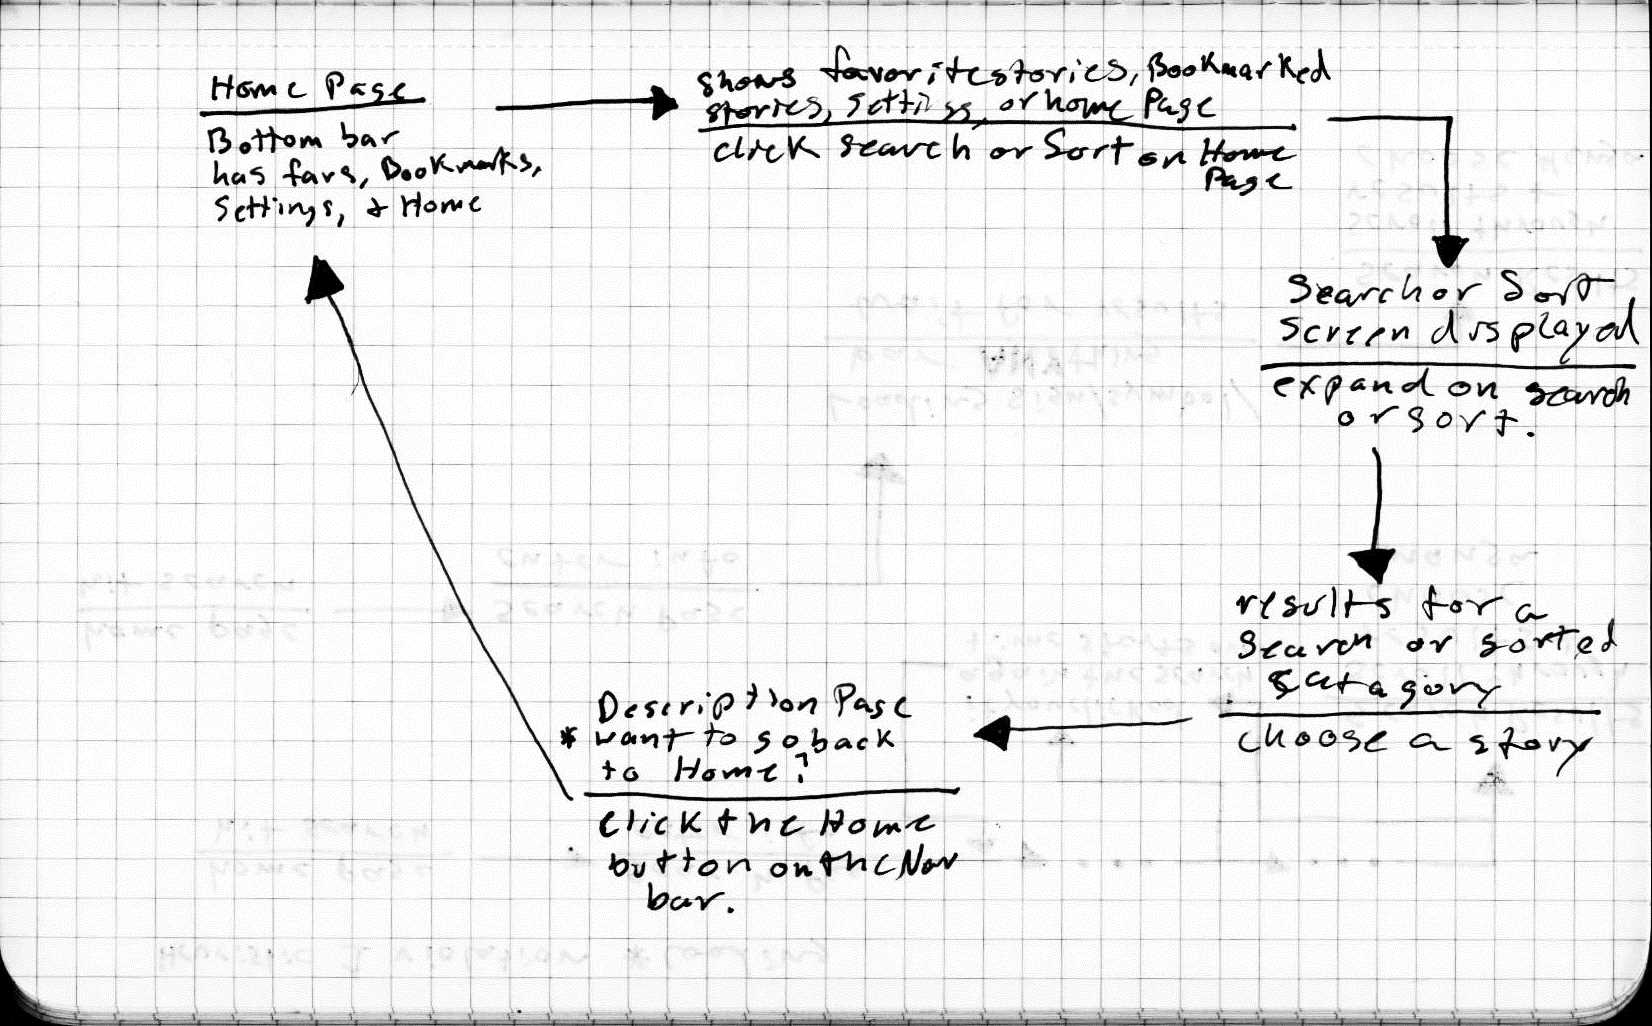 Home Page
Bottom bar
has favs, Bookmarks,
Settings, & Home
shows favorite stories, Bookmarked
stories, settings, or home Page
click search or Sort on Home
Page
Search or Sort
screen displayed
expand on search
or sort.
results for a
search or sorted
catagory
choose a story
Description Page
* want to go back
to Home?
Click the Home
button on the Nav
bar.